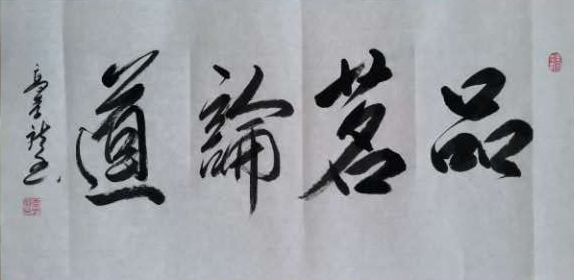 品茗論道